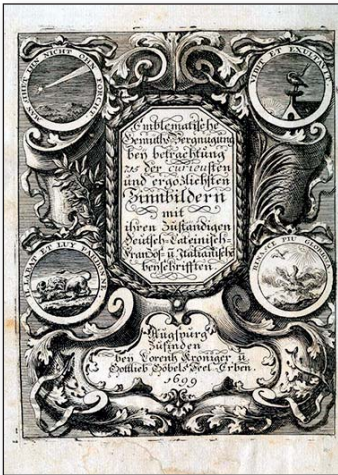 MAN SIHET IHN NICHT OHN FORCHT
VIDIT ET EXULTAVIT
Emblematische
Gemüths-Vergnügung
bey betrachtung
715 der curieusten
und ergözlichsten
Sinnbildern
mit
ihren zuständigen
Deütsch-Lateinisch-
Französ- u. Italianische
beyschrifften
IL L'ABAT ET LUY PARDONNE
RINASCE PIU GLORIOSA
Augspurg
zufinden
bey Lorentz Kroniger u.
Gottlieb Göbels Seel. Erben.
1699